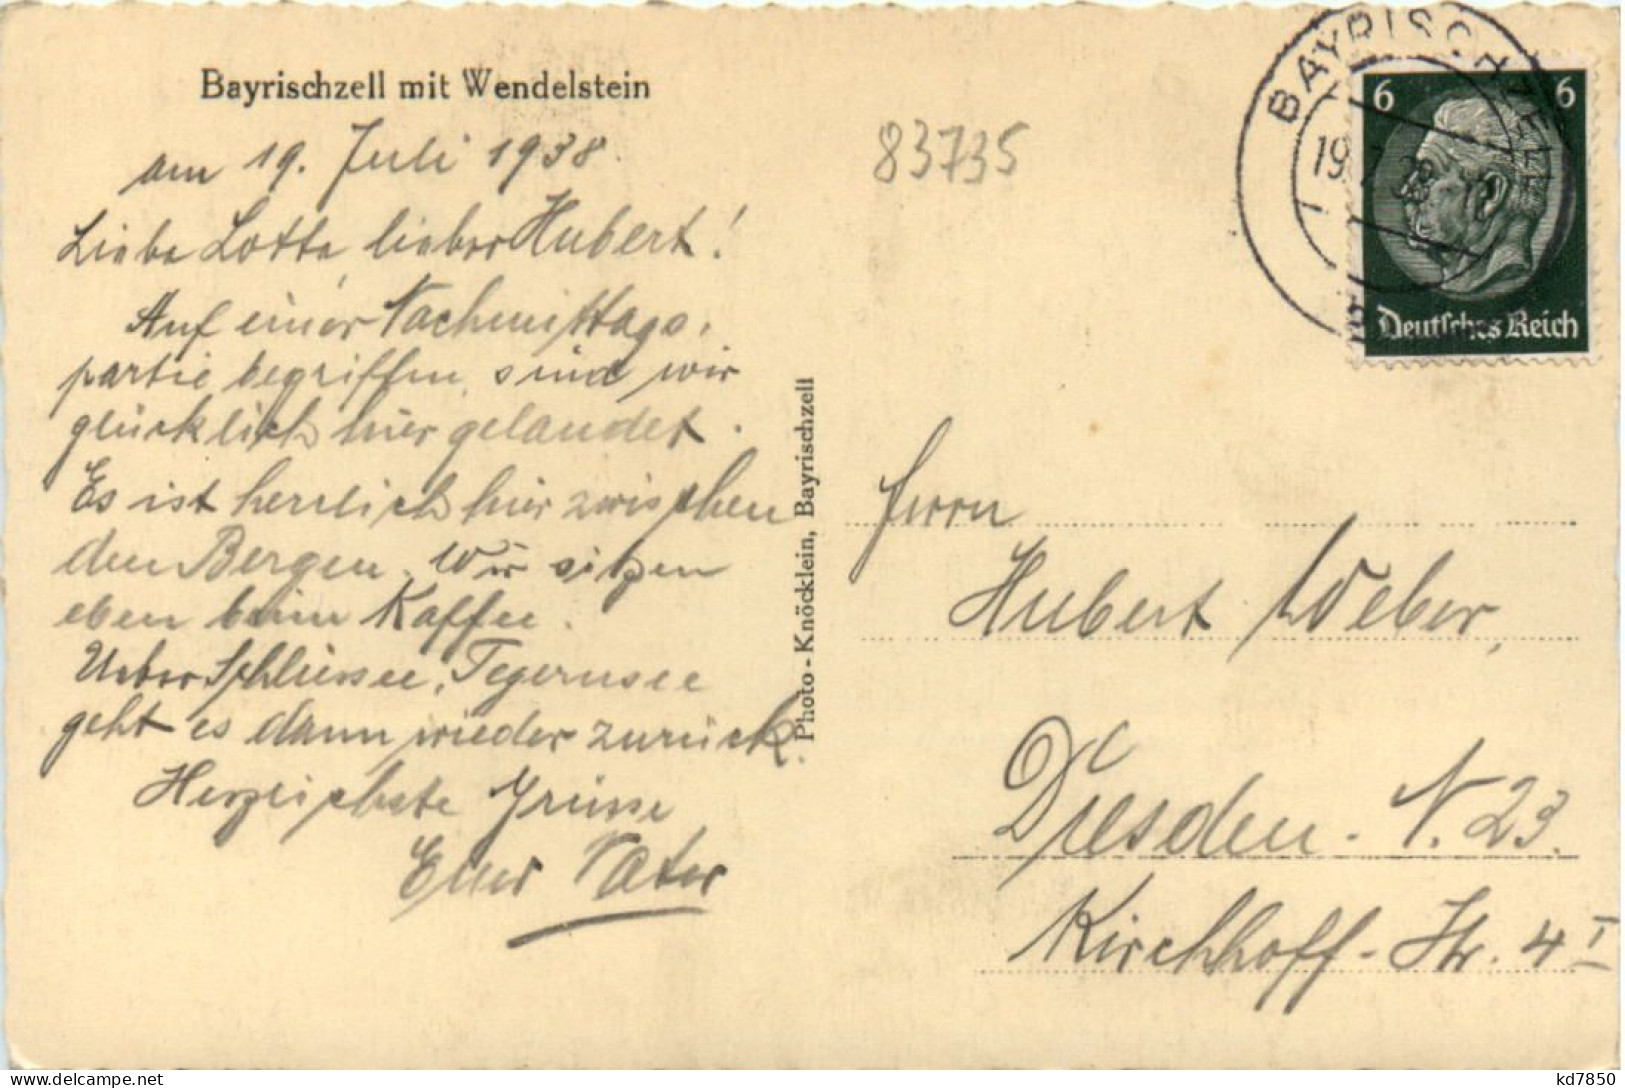 Bayrischzell mit Wendelstein
am 19. Juli 1938.
Liebe Lotte lieber Hubert!
Auf einer Nachmittags-
partie begriffen, sind wir
glücklich hier gelandet.
Es ist herrlich hier zwischen
den Bergen. Wir sitzen
eben beim Kaffee.
Ueber Schliersee, Tegernsee
geht es dann wieder zurück.
Herzlichste Grüsse
Euer Vater
Photo-Knöcklein, Bayrischzell
83735
BAYRISCHZELL
19.7.38
6 6
Deutsches Reich
Herrn
Hubert Weber,
Dresden-N. 23.
Kirchhoff-Str. 4 I
kd7850